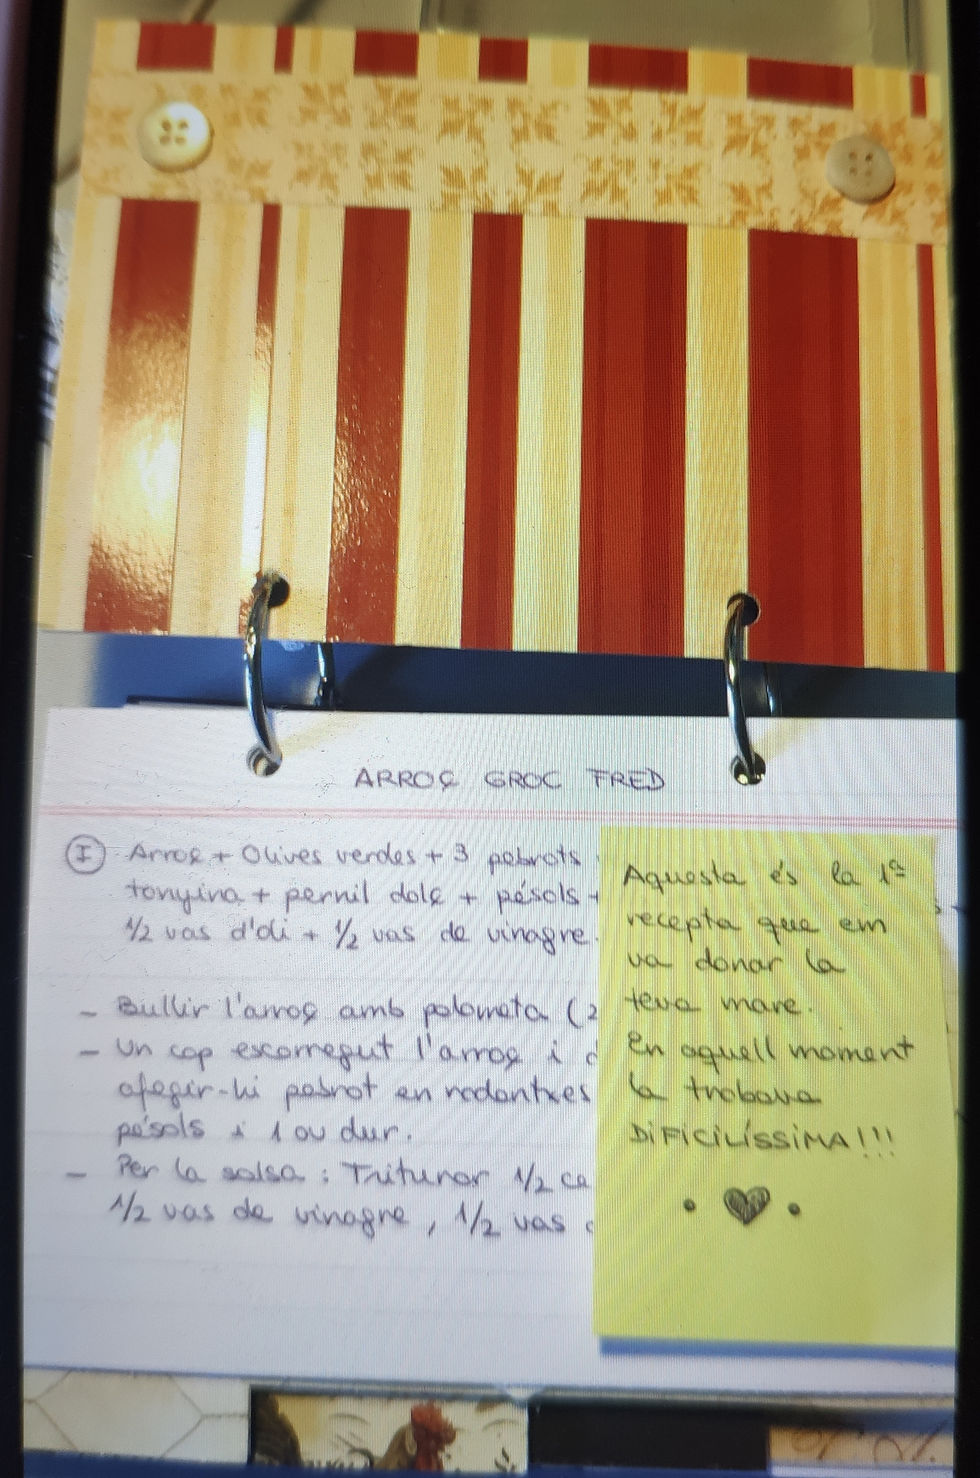 ARROÇ GROC FRED
I Arroç + Olives verdes + 3 pebrots
tonyina + pernil dolç + pésols +
1/2 vas d'oli + 1/2 vas de vinagre.
- Bullir l'arroç amb palometa (2
- Un cop escorregut l'arroç i
afegir-hi pebrot en rodantxes
pésols i 1 ou dur.
- Per la salsa : Triturar 1/2 ce
1/2 vas de vinagre, 1/2 vas
Aquesta és la 1ª
recepta que em
va donar la
teva mare.
En aquell moment
la trobava
DIFICILÍSSIMA!!!